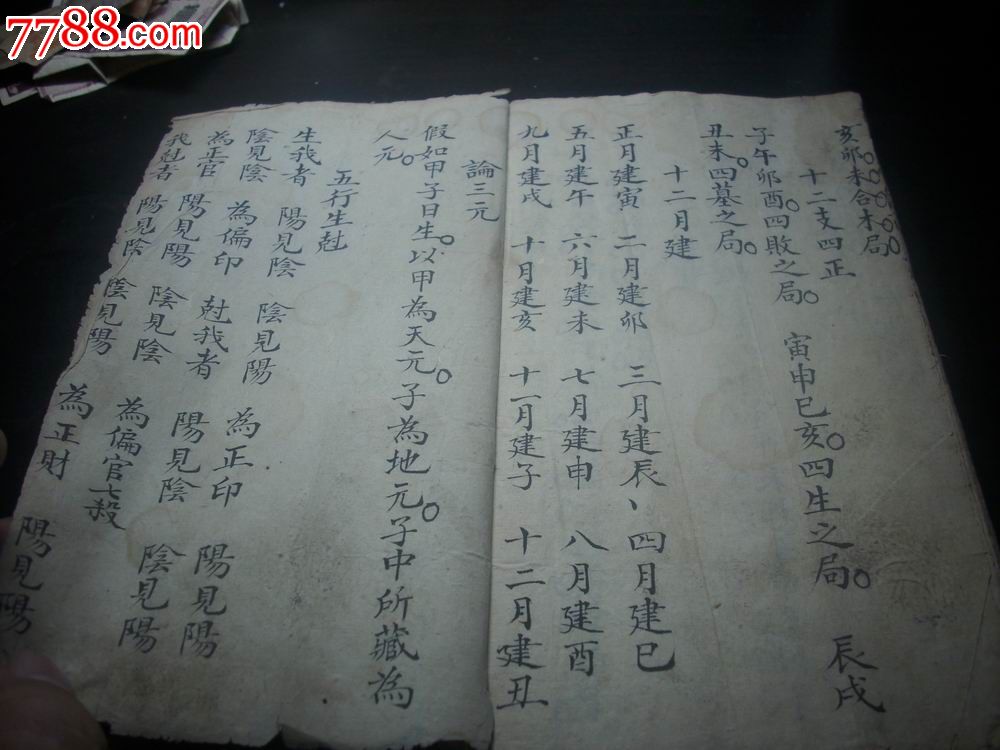 亥。卯。未。合。木。局。
十二支四正
子午卯酉。四敗之局。 寅申巳亥。四生之局。 辰戌
丑未。四墓之局。
十二月建
正月建寅 二月建卯 三月建辰、四月建巳
五月建午 六月建未 七月建申 八月建酉
九月建戌 十月建亥 十一月建子 十二月建丑
論三元
假如甲子日生。以甲為天元。子為地元。子中所藏為
人元。
五行生尅
生我者 陽見陰 陰見陽 為正印 陽見陽
陰見陰 為偏印 尅我者 陽見陰 陰見陽
為正官 陽見陽 陰見陰 為偏官七殺
我尅者 陽見陰 陰見陽 為正財 陽見陽
7788.com